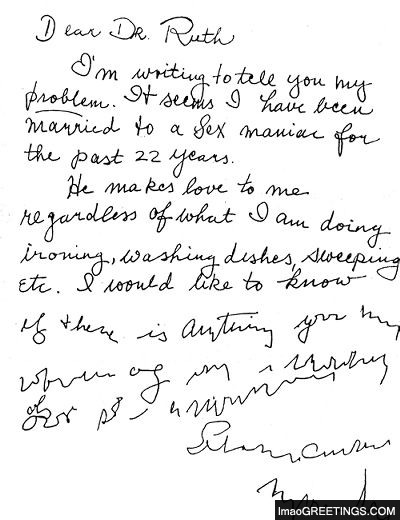 Dear Dr. Ruth
I'm writing to tell you my
problem. It seems I have been
married to a Sex maniac for
the past 22 years.
He makes love to me
regardless of what I am doing
ironing, washing dishes, sweeping
etc. I would like to know
if there is anything you
lmaoGREETINGS.COM